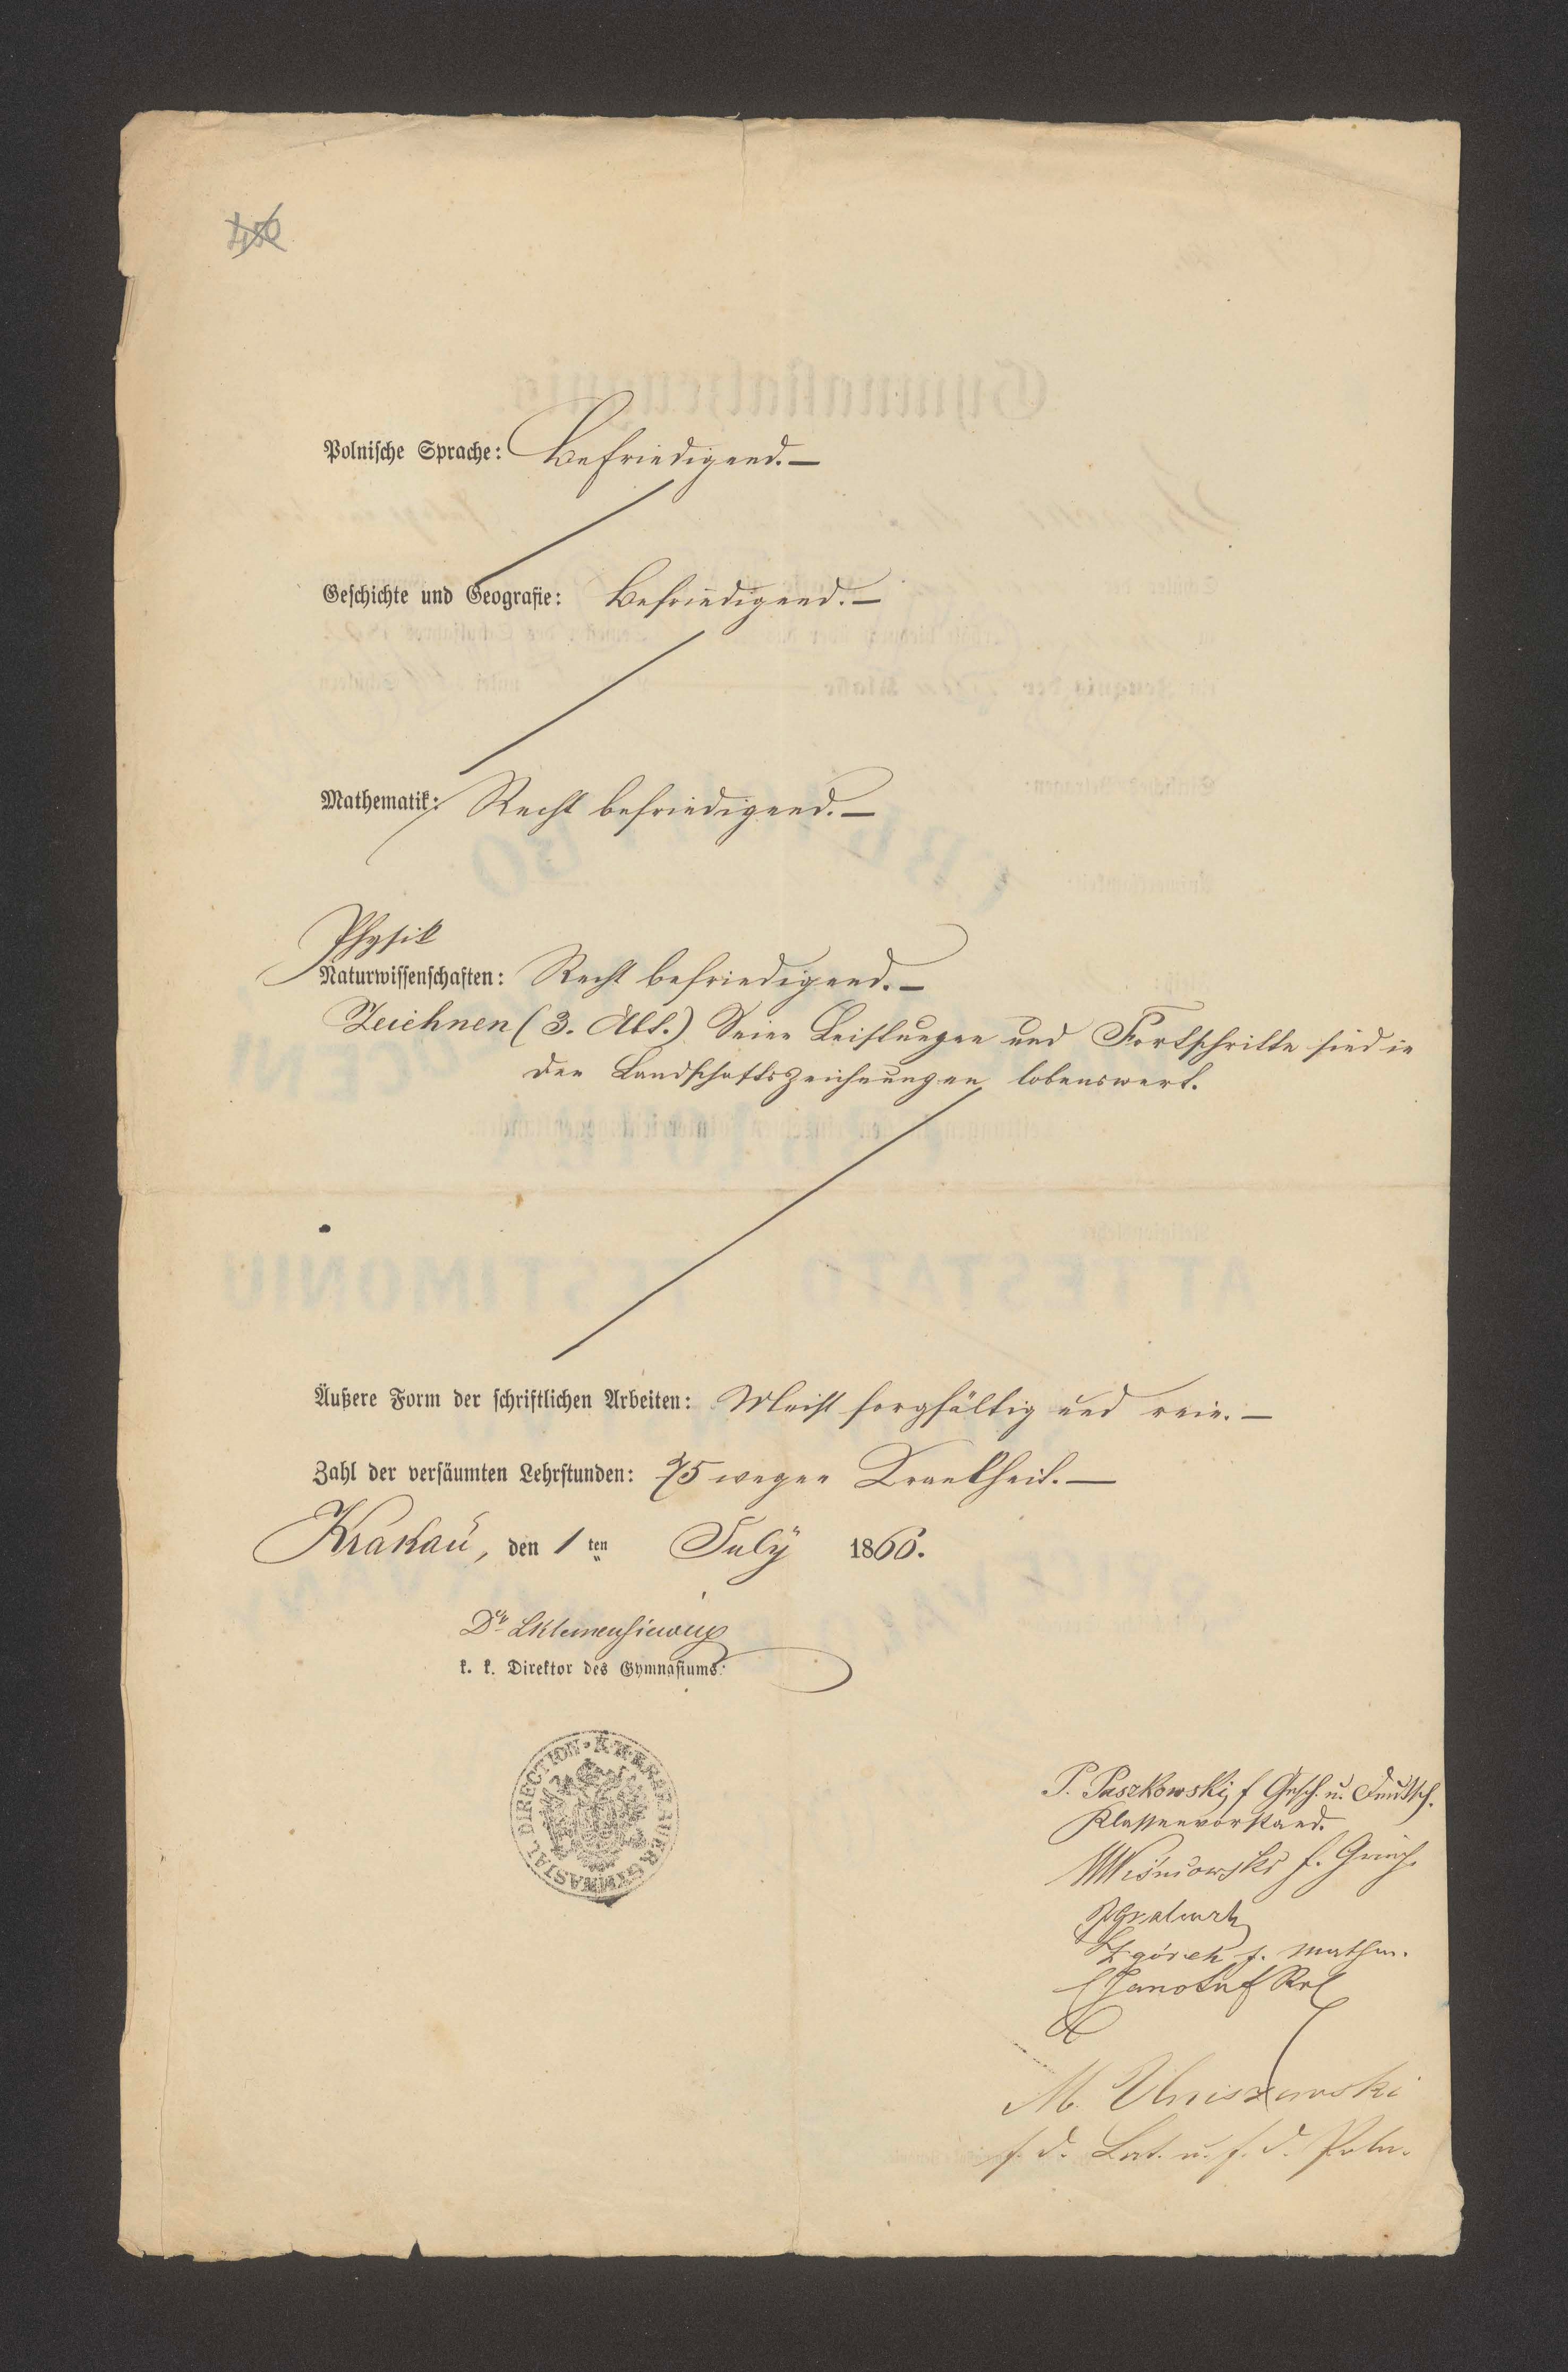 450
Polnische Sprache: Befriedigend. —
Geschichte und Geografie: Befriedigend. —
Mathematik: Recht befriedigend. —
Physik
Naturwissenschaften: Recht befriedigend. —
Zeichnen (3. Abt.) Seine Leistungen und Fortschritte sind in
den Landschaftszeichnungen lobenswert.
Äußere Form der schriftlichen Arbeiten: Meist sorgfältig und rein. —
Zahl der versäumten Lehrstunden: 75 wegen Krankheit. —
Krakau, den 1 ten July 1866.
Dr. Klemensiewicz
k. k. Direktor des Gymnasiums.
K. K. KRAKAUER GYMNASTAL DIRECTION
P. Paszkowski f. Gesch. u. Deutsch.
Klassenvorstand.
Wisniowski f. Griech.
Zgórek f. Mathem.
M.
f. d. Lat. u. f. d. Poln.